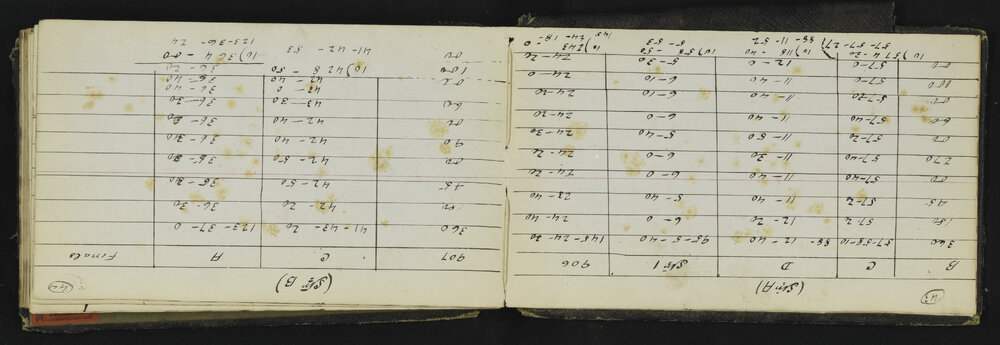 43
(Stn A)
B C D Stn 1 906
360 57-58-10 88-12-40 95-5-40 145-24-20
180 57-20 12-20 6-0 24-40
45 57-20 11-40 5-40 23-40
00 57-40 11-40 6-0 24-20
270 57-40 11-30 6-0 24-20
00 57-20 11-50 5-40 24-30
60 57-40 11-40 6-0 24-20
00 57-20 11-40 6-10 24-20
180 57-0 11-40 6-10 24-0
00 57-0 12-0 5-30 24-20
10)574-20 10)118-40 10)58-50 10)243-0
57-57-27 88-11-52 5-53 145 24-18
44
(Stn B)
907 C A Finals
360 41-43-20 123-37-0
180 42-20 36-30
45 42-50 36-30
00 42-50 36-30
90 42-40 36-30
00 42-40 36-30
60 43-30 36-30
00 42-0 36-40
180 42-40 36-40
00 10)428-50 36-20
41-42-53 10)364-00
123-36-24